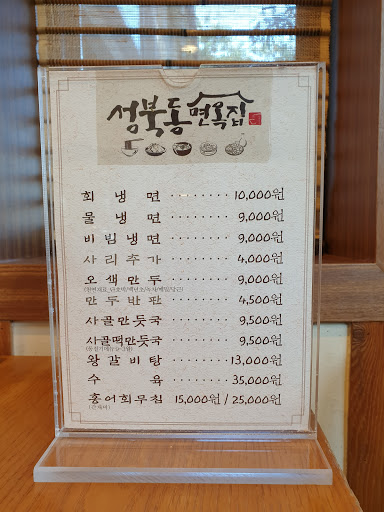 성북동면옥집
회 냉 면 ········ 10,000원
물 냉 면 ········ 9,000원
비 빔 냉 면 ········ 9,000원
사 리 추 가 ········ 4,000원
오 색 만 두 ········ 9,000원
만 두 반 판 ········ 4,500원
사골만둣국 ········ 9,500원
사골떡만둣국 ········ 9,500원
왕 갈 비 탕 ········ 13,000원
수 육 ········ 35,000원
홍어회무침 15,000원 / 25,000원